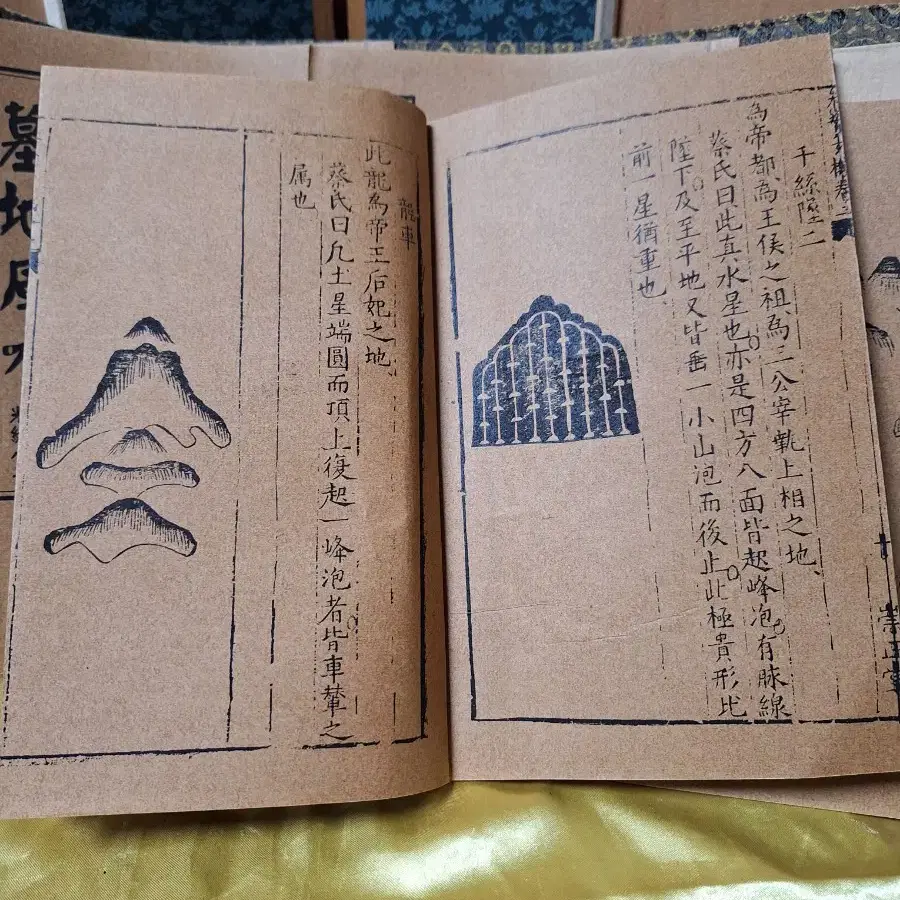 千絲墜二
為帝都為王侯之祖為三公宰執上相之地、
蔡氏曰此真水星也亦是四方八面皆起峰泡有脉線
墜下及至平地又皆垂一小山泡而後止此極貴形比
前一星猶重也
崇正堂
龍車
此龍為帝王后妃之地、
蔡氏曰凡土星端圓而頂上復起一峰泡者皆車輦之
属也
墓地